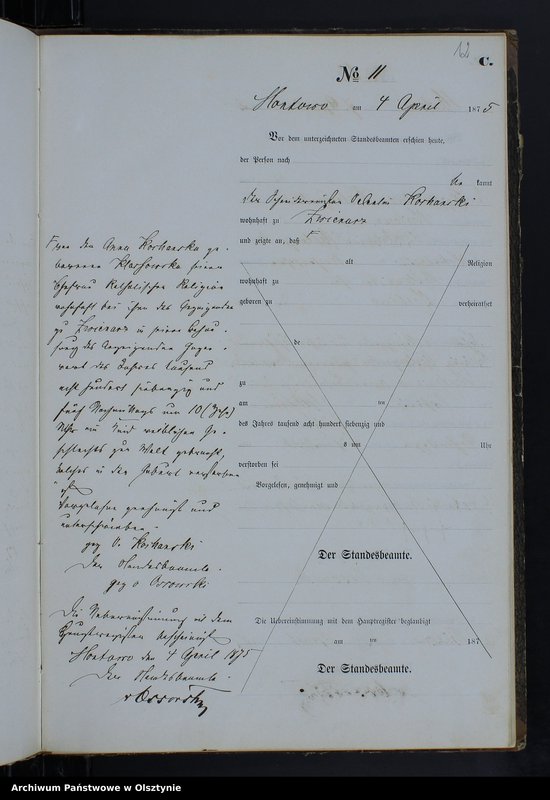 62
C.
No 11
am 4 April 1875
Vor dem unterzeichneten Standesbeamten erschien heute,
der Person nach
kannt
der
wohnhaft zu Zwiniarz
und zeigte an, daß
alt Religion
wohnhaft zu
geboren zu verheirathet
de
zu
am ten
des Jahres tausend acht hundert siebenzig und
s um Uhr
verstorben sei
Vorgelesen, genehmigt und
Der Standesbeamte.
Die Uebereinstimmung mit dem Hauptregister beglaubigt
am ten 187
Der Standesbeamte.
von der Anna ge-
borenen seiner
Ehefrau Katholischer Religion
wohnhaft bei ihm des Anzeigenden
zu Zwiniarz in seiner Behau-
sung des Anzeigenden
des Jahres tausend
acht hundert siebenzig und
fünf Nachmittags um 10 (Zehn)
Uhr ein Kind weiblichen Ge-
schlechts zur Welt gebracht,
welches in der Geburt verstorben
ist
Vorgelesen genehmigt und
unterschrieben
gez
Der Standesbeamte
gez v. Ossowski
Die Uebereinstimmung mit dem
Hauptregister bescheinigt
den 4 April 1875
Der Standesbeamte
v Ossowski
Archiwum Państwowe w Olsztynie